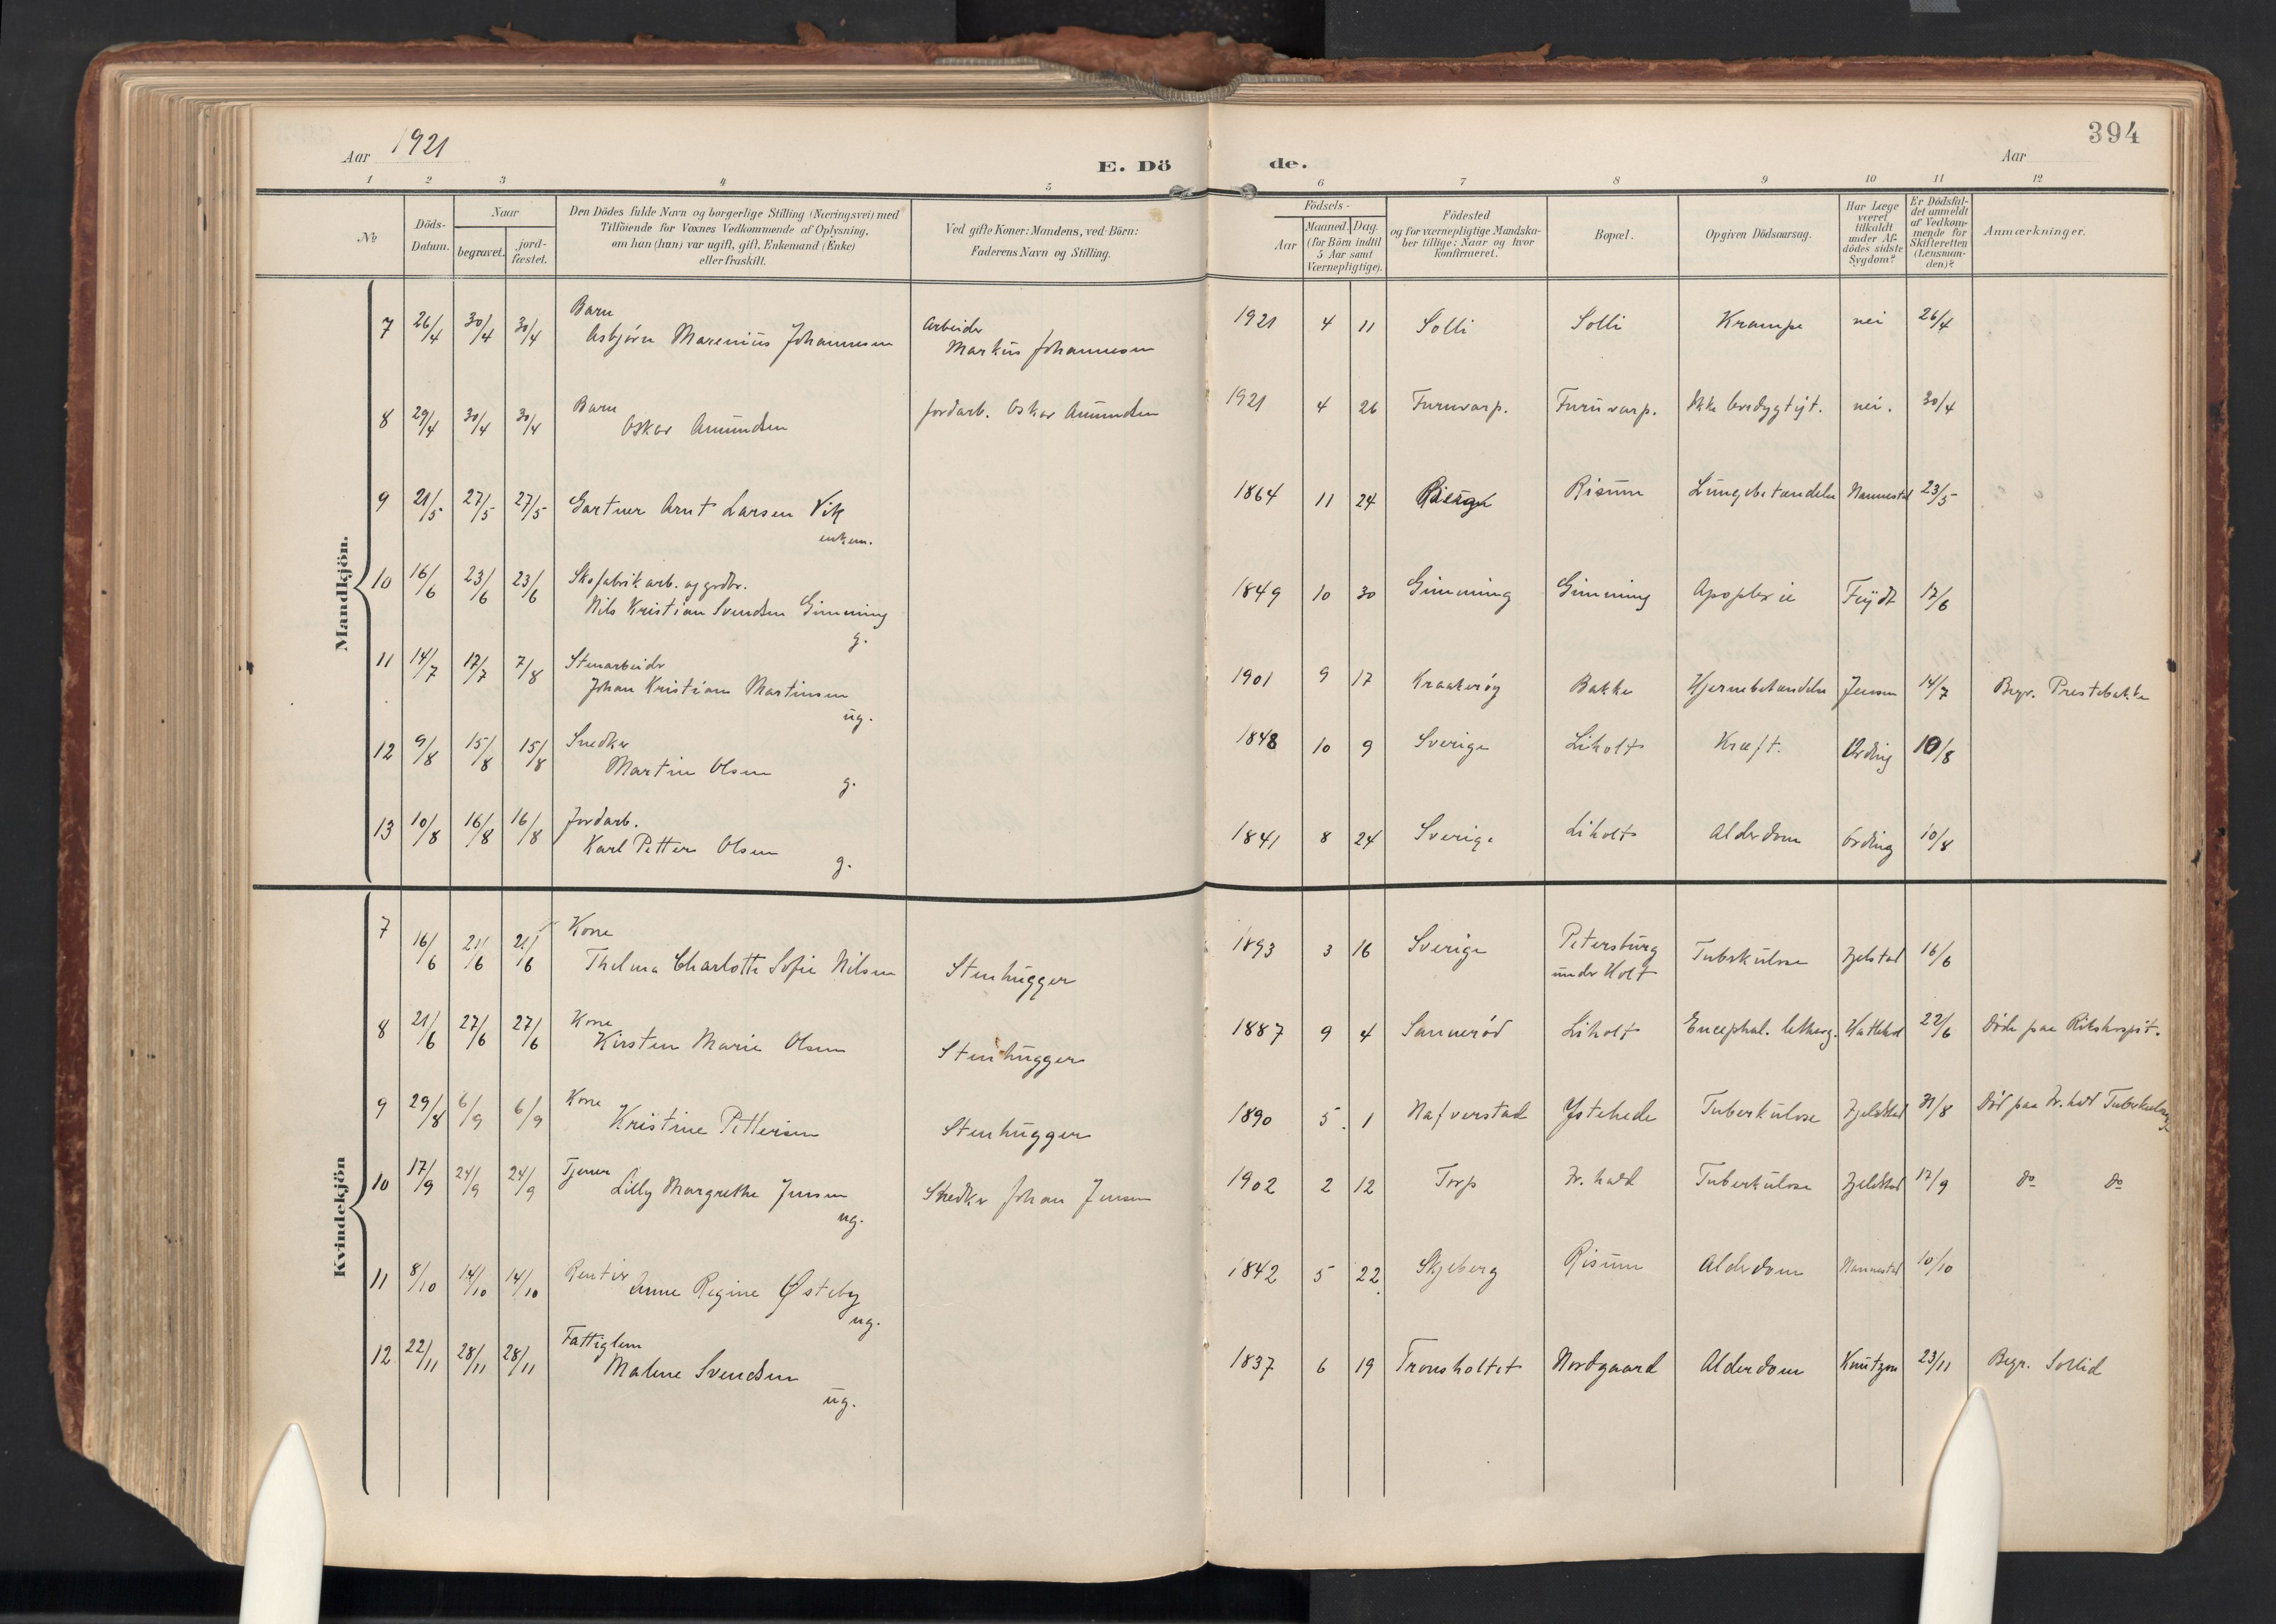 394
Aar 1921
E. Dö de.
Aar
1 2 3 4 5 6 7 8 9 10 11 12
No
Döds-
Datum.
Naar
begravet.
jord-
fæstet.
Den Dödes fulde Navn og borgerlige Stilling (Næringsvei) med
Tilföiende for Voxnes Vedkommende af Oplysning,
om han (hun) var ugift, gift, Enkemand (Enke)
eller fraskilt.
Ved gifte Koner: Mandens, ved Börn:
Faderens Navn og Stilling.
Födsels-
Aar
Maaned. Dag.
(for Börn indtil
5 Aar samt
Værnepligtige).
Födested
og for værnepligtige Mandska-
ber tillige: Naar og hvor
konfirmeret.
Bopæl.
Opgiven Dödsaarsag.
Har Læge
været
tilkaldt
under Af-
dödes sidste
Sygdom?
Er Dödsfal-
det anmeldt
af Vedkom-
mende for
Skifteretten
(Lensman-
den)?
Anmærkninger.
Mandkjön.
7 26/4 30/4 30/4 Barn
Asbjørn Marenius Johannesen
Arbeider
Markus Johannesen
1921 4 11 Solli Solli Krampe nei 26/4
8 29/4 30/4 30/4 Barn
Oskar Amundsen
Jordarb. Oskar Amundsen
1921 4 26 Furuvarp. Furuvarp. Ikke levedygtigt. nei. 30/4
9 21/5 27/5 27/5 Gartner Arnt Larsen Vik
enkem.
1864 11 24 Risum Lungebetændelse Nannestad 23/5
10 16/6 23/6 23/6 Skofabrikarb. og grdbr.
Nils Kristian Svendsen Gimming
g.
1849 10 30 Gimming Gimming Apoplexie Feydt 17/6
11 14/7 17/7 7/8 Stenarbeider
Johan Kristian Martinsen
ug.
1901 9 17 Kraakerøy Bakke Hjernebetændelse Jensen 14/7 Begr. Prestebakke
12 9/8 15/8 15/8 Snedker
Martin Olsen
g.
1848 10 9 Sverige Liholt Kræft. Ording 10/8
13 10/8 16/8 16/8 Jordarb.
Karl Petter Olsen
g.
1841 8 24 Sverige Liholt Alderdom Ording 10/8
Kvindekjön
7 16/6 21/6 21/6 Kone
Thelma Charlotte Sofie Nilsen
Stenhugger
1893 3 16 Sverige Petersburg
under Holt
Tuberkulose 16/6
8 21/6 27/6 27/6 Kone
Kirsten Marie Olsen
Stenhugger
1887 9 4 Sannerød Liholt Encephal. letharg. 22/6 Døde paa Rikshospit.
9 29/8 6/9 6/9 Kone
Kristine Pettersen
Stenhugger
1890 5 1 Nafverstad Ystehede Tuberkulose 31/8 Død paa Fr.hald
10 17/9 24/9 24/9 Tjener
Lilly Margrethe Jensen
ug.
Snedker Johan Jensen
1902 2 12 Torp Fr.hald Tuberkulose 17/9 do do
11 8/10 14/10 14/10 Rentier
Anne Regine Østeby
ug.
1842 5 22 Skjeberg Risum Alderdom Nannestad 10/10
12 22/11 28/11 28/11 Fattiglem
Malene Svendsen
ug.
1837 6 19 Tronsholtet Nordgaard Alderdom Knutzon 23/11 Begr. Sollid